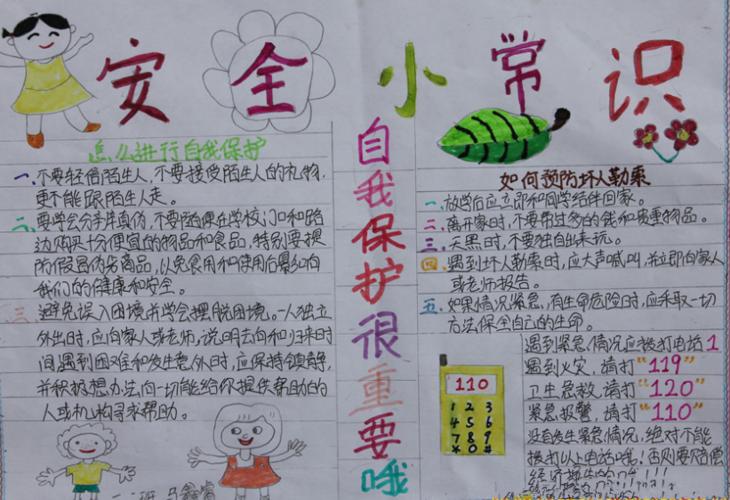 安全小常识
怎么进行自我保护
一、不要轻信陌生人,不要接受陌生人的礼物,
更不能跟陌生人走。
二、要学会分辨真伪,不要随便在学校门口和路
边购买十分便宜的物品和食品,特别要提
防假冒伪劣商品,以免食用和使用后影响
我们的健康和安全。
三、避免误入困境并学会摆脱困境。一人独立
外出时,应向家人或老师说明去向和归来时
间,遇到困难和发生意外时,应保持镇静,
并积极想办法向一切能给你提供帮助的
人或机构寻求帮助。
自我保护很重要哦
如何预防坏人勒索
一、放学后应立即和同学结伴回家。
二、离开家时,不要带过多的钱和贵重物品。
三、天黑时,不要独自出来玩。
四、遇到坏人勒索时,应大声喊叫,并立即向家人
或老师报告。
五、如果情况紧急,有生命危险时,应采取一切
方法保全自己的生命。
110
1 2 3
4 5 6
7 8 9
* 0 #
遇到紧急情况应拨打电话1
遇到火灾,请打"119"
卫生急救,请打"120"
紧急报警,请打"110"
没有发生紧急情况,绝对不能
拨打以上电话哦,否则要赔偿
经济损失的
班 马鑫